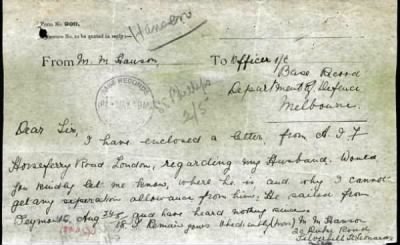 Form No. 900.
Hanson
Signature No. to be quoted in reply:—
From M. M Hanson
To Officer i/c
Base Record
BASE RECORDS
Department of Defence
Melbourne.
2/5
Dear Sir,
I have enclosed a letter, from A.I.F
Horseferry Road London, regarding my Husband. Would
you kindly let me know, where he is and why I cannot
get any separation allowance from him, He sailed from
Plymouth, Aug 24th and have heard nothing since.
I Remain yours Obediently (Mrs) M M Hanson
20 Duke Road
Silverhill St Leonards